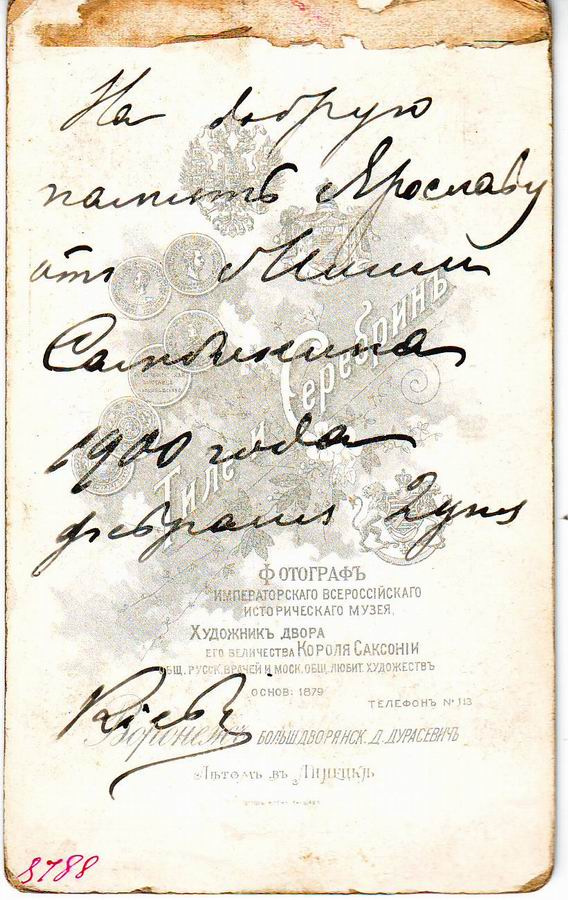 На добрую
память Ярославу
отъ
1900 года
февраля 2 дня
Тиле и Серебринъ
ФОТОГРАФЪ
ИМПЕРАТОРСКАГО ВСЕРОССІЙСКАГО
ИСТОРИЧЕСКАГО МУЗЕЯ,
ХУДОЖНИКЪ ДВОРА
ЕГО ВЕЛИЧЕСТВА КОРОЛЯ САКСОНІИ
ОБЩ. РУССК. ВРАЧЕЙ И МОСК. ОБЩ. ЛЮБИТ. ХУДОЖЕСТВЪ
ОСНОВ: 1879
ТЕЛЕФОНЪ № 113
Кіевъ
Воронежъ БОЛЬШ ДВОРЯНСК. Д. ДУРАСЕВИЧЪ
Лѣтомъ въ Липецкѣ
8788